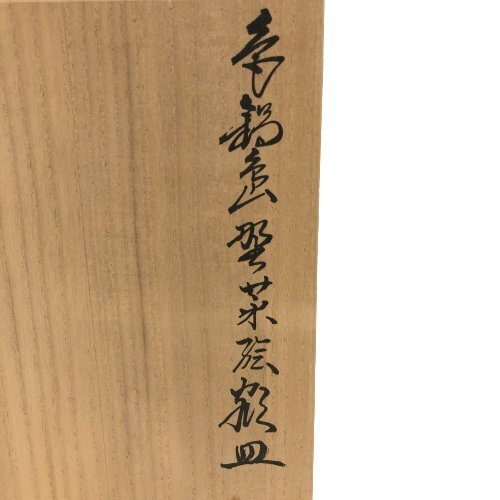 色鍋島野菜絵額皿